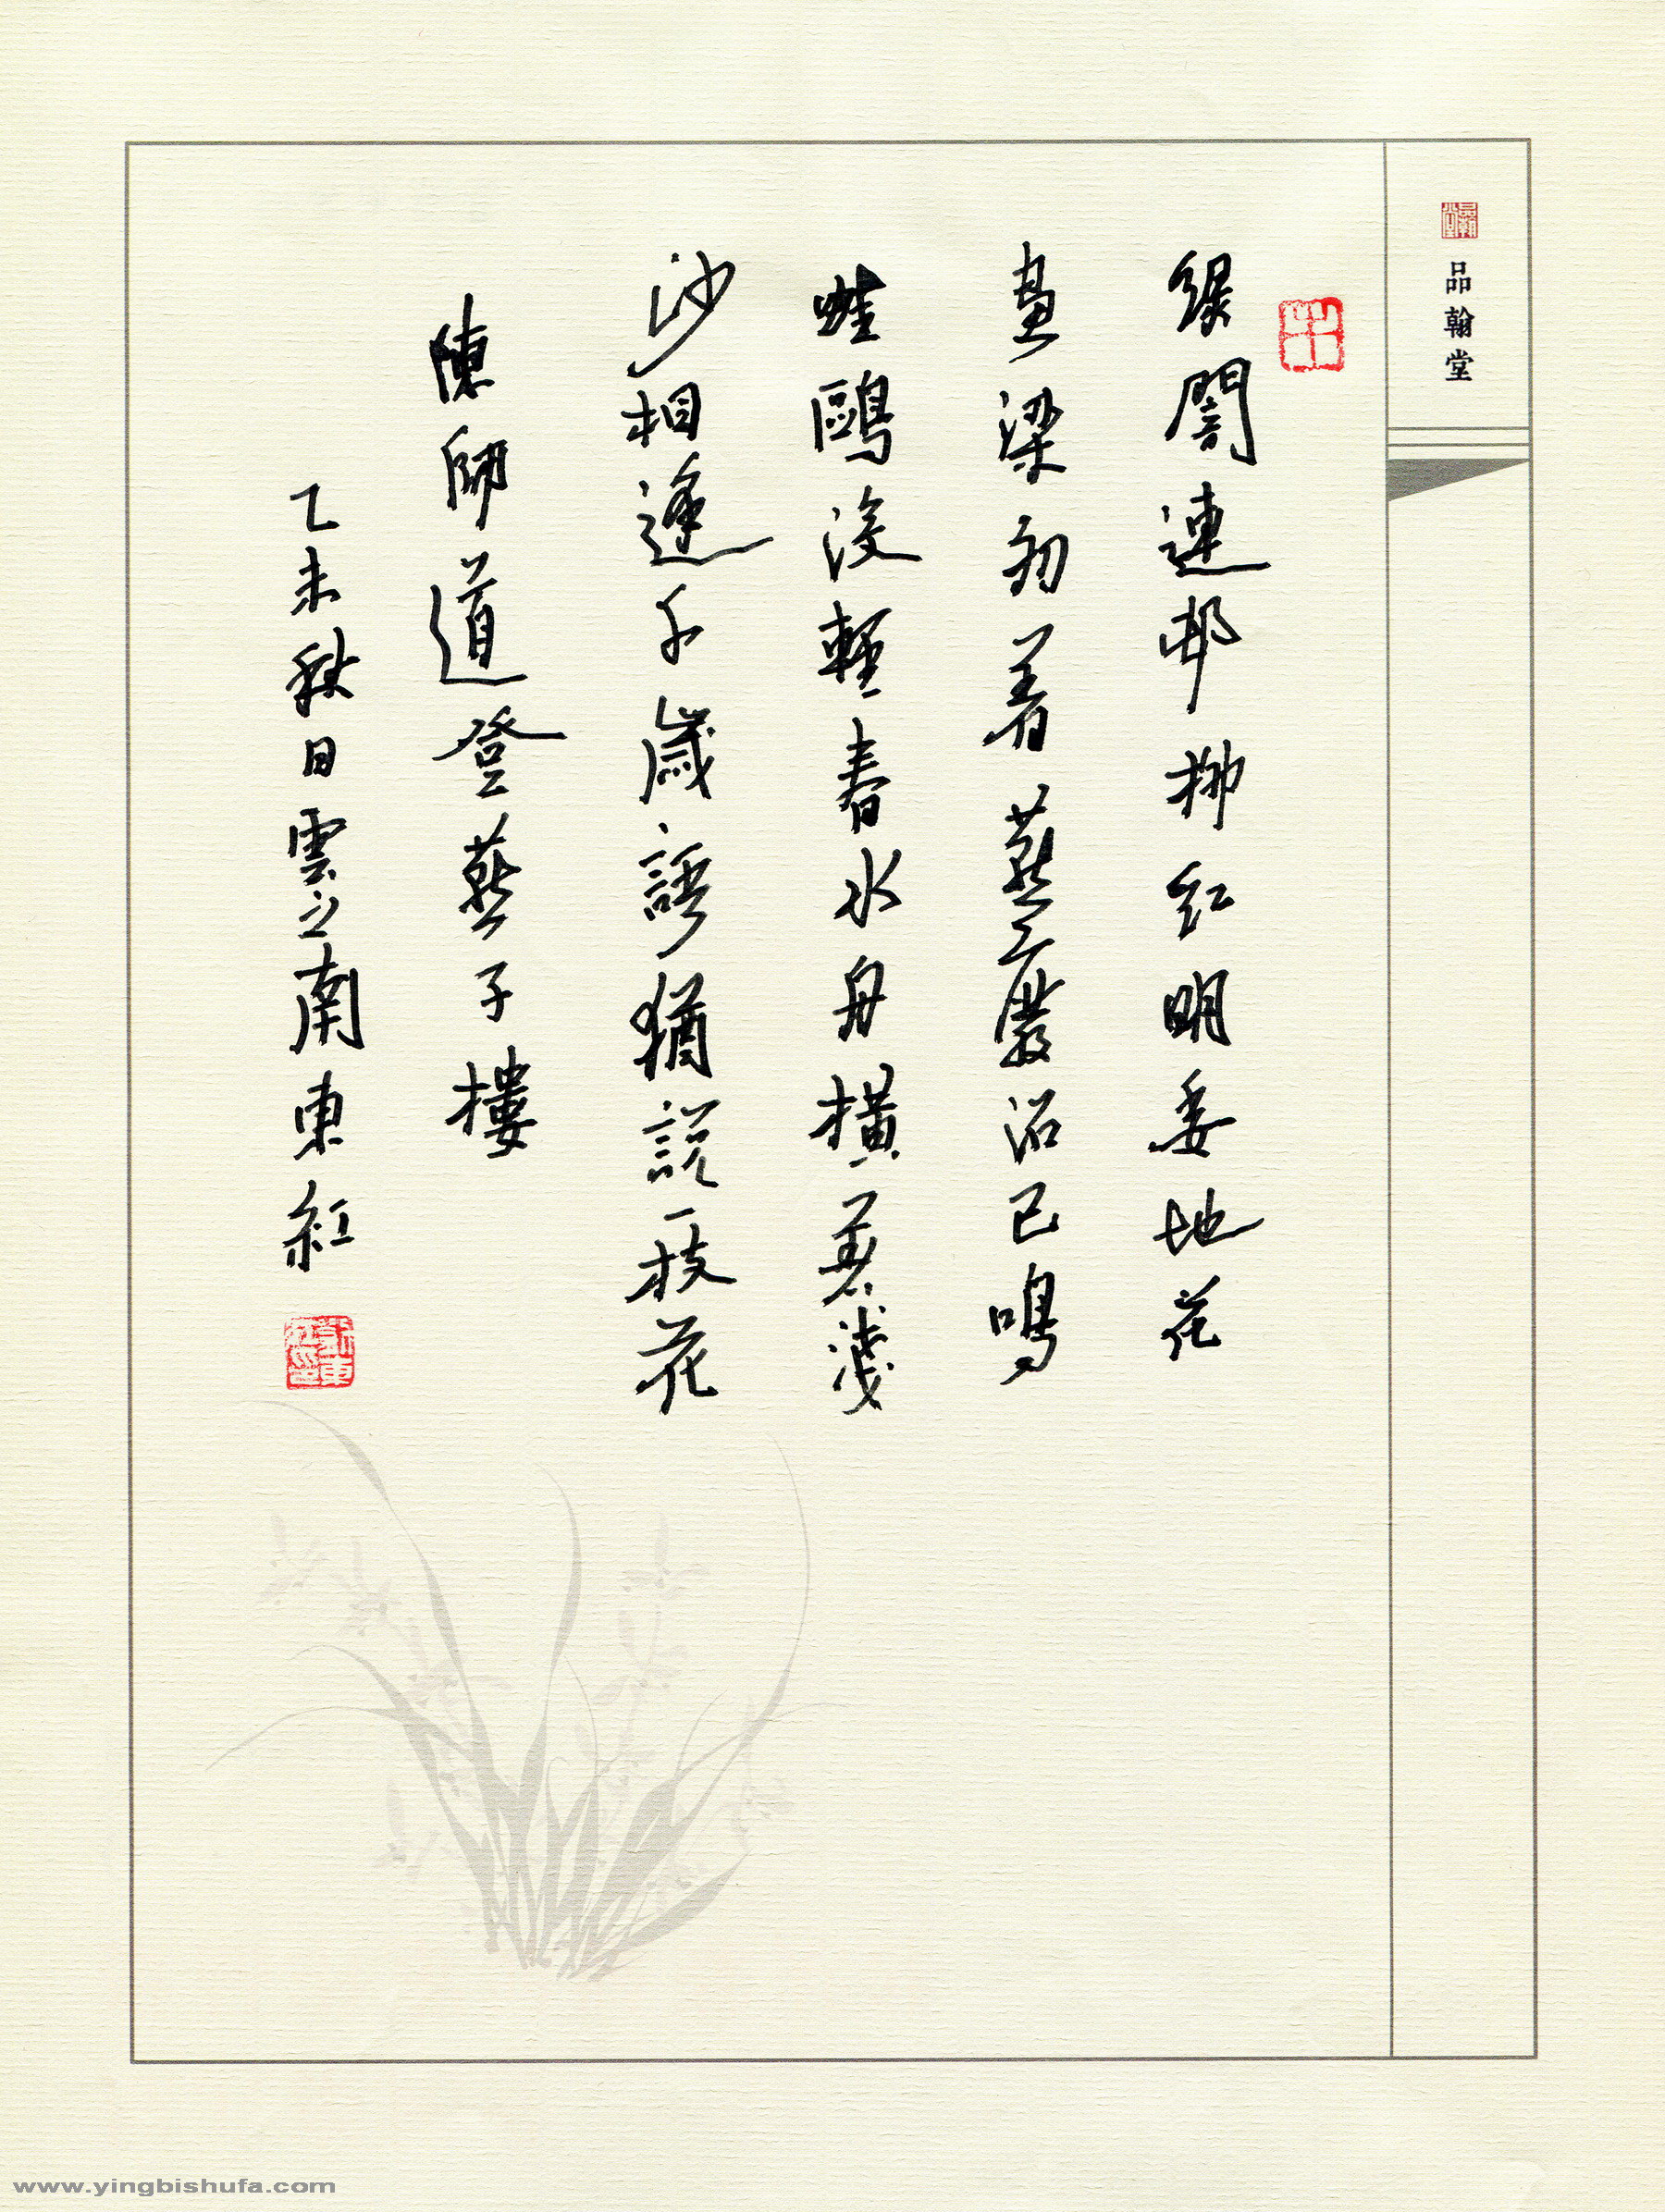 品翰堂
綠闇連邨柳紅明委地花
畫梁初着燕廢沼已鳴
蛙鷗没輕春水舟橫着淺
沙相逢千歲語猶説一枝花
陳師道登燕子樓
乙未秋日雲之南東紅
www.yingbishufa.com